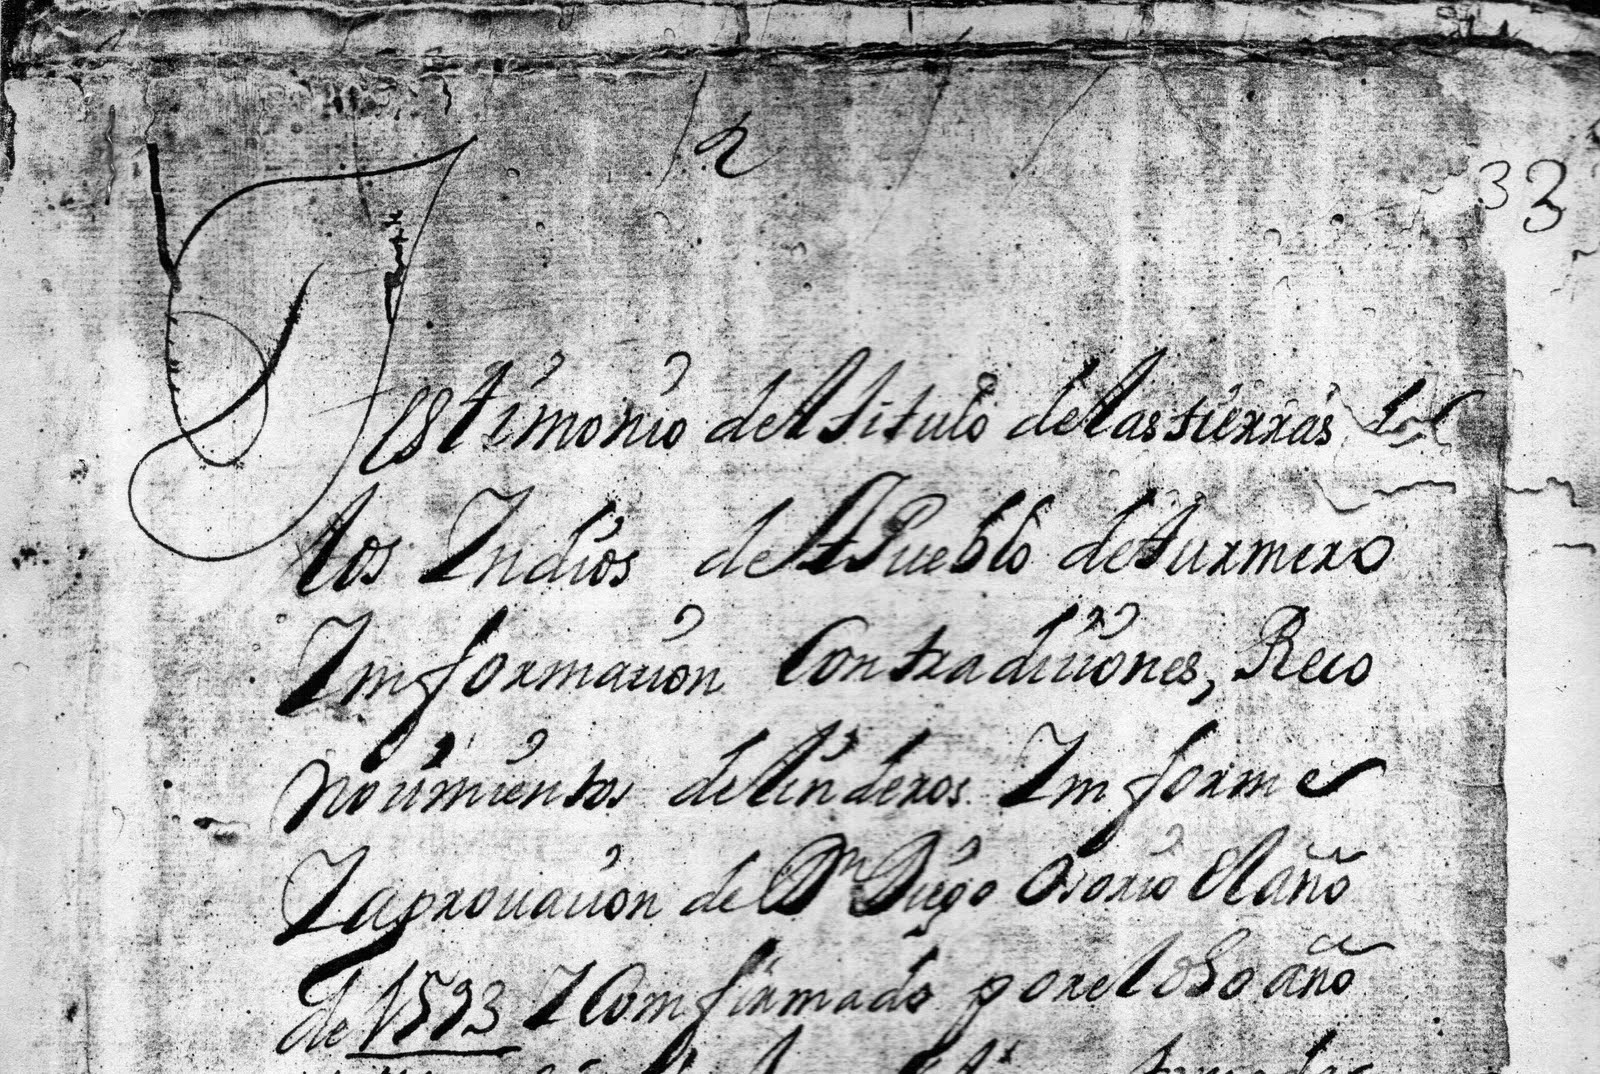 2
33
Testimonio del titulo de las tierras
los Indios del Pueblo de turmero
Imformacion Contradiciones, Reco
nocimientos de linderos. Imforme
Yaprouacion de Dn Diego Osorio El año
de 1593 Y Comfirmado por el año